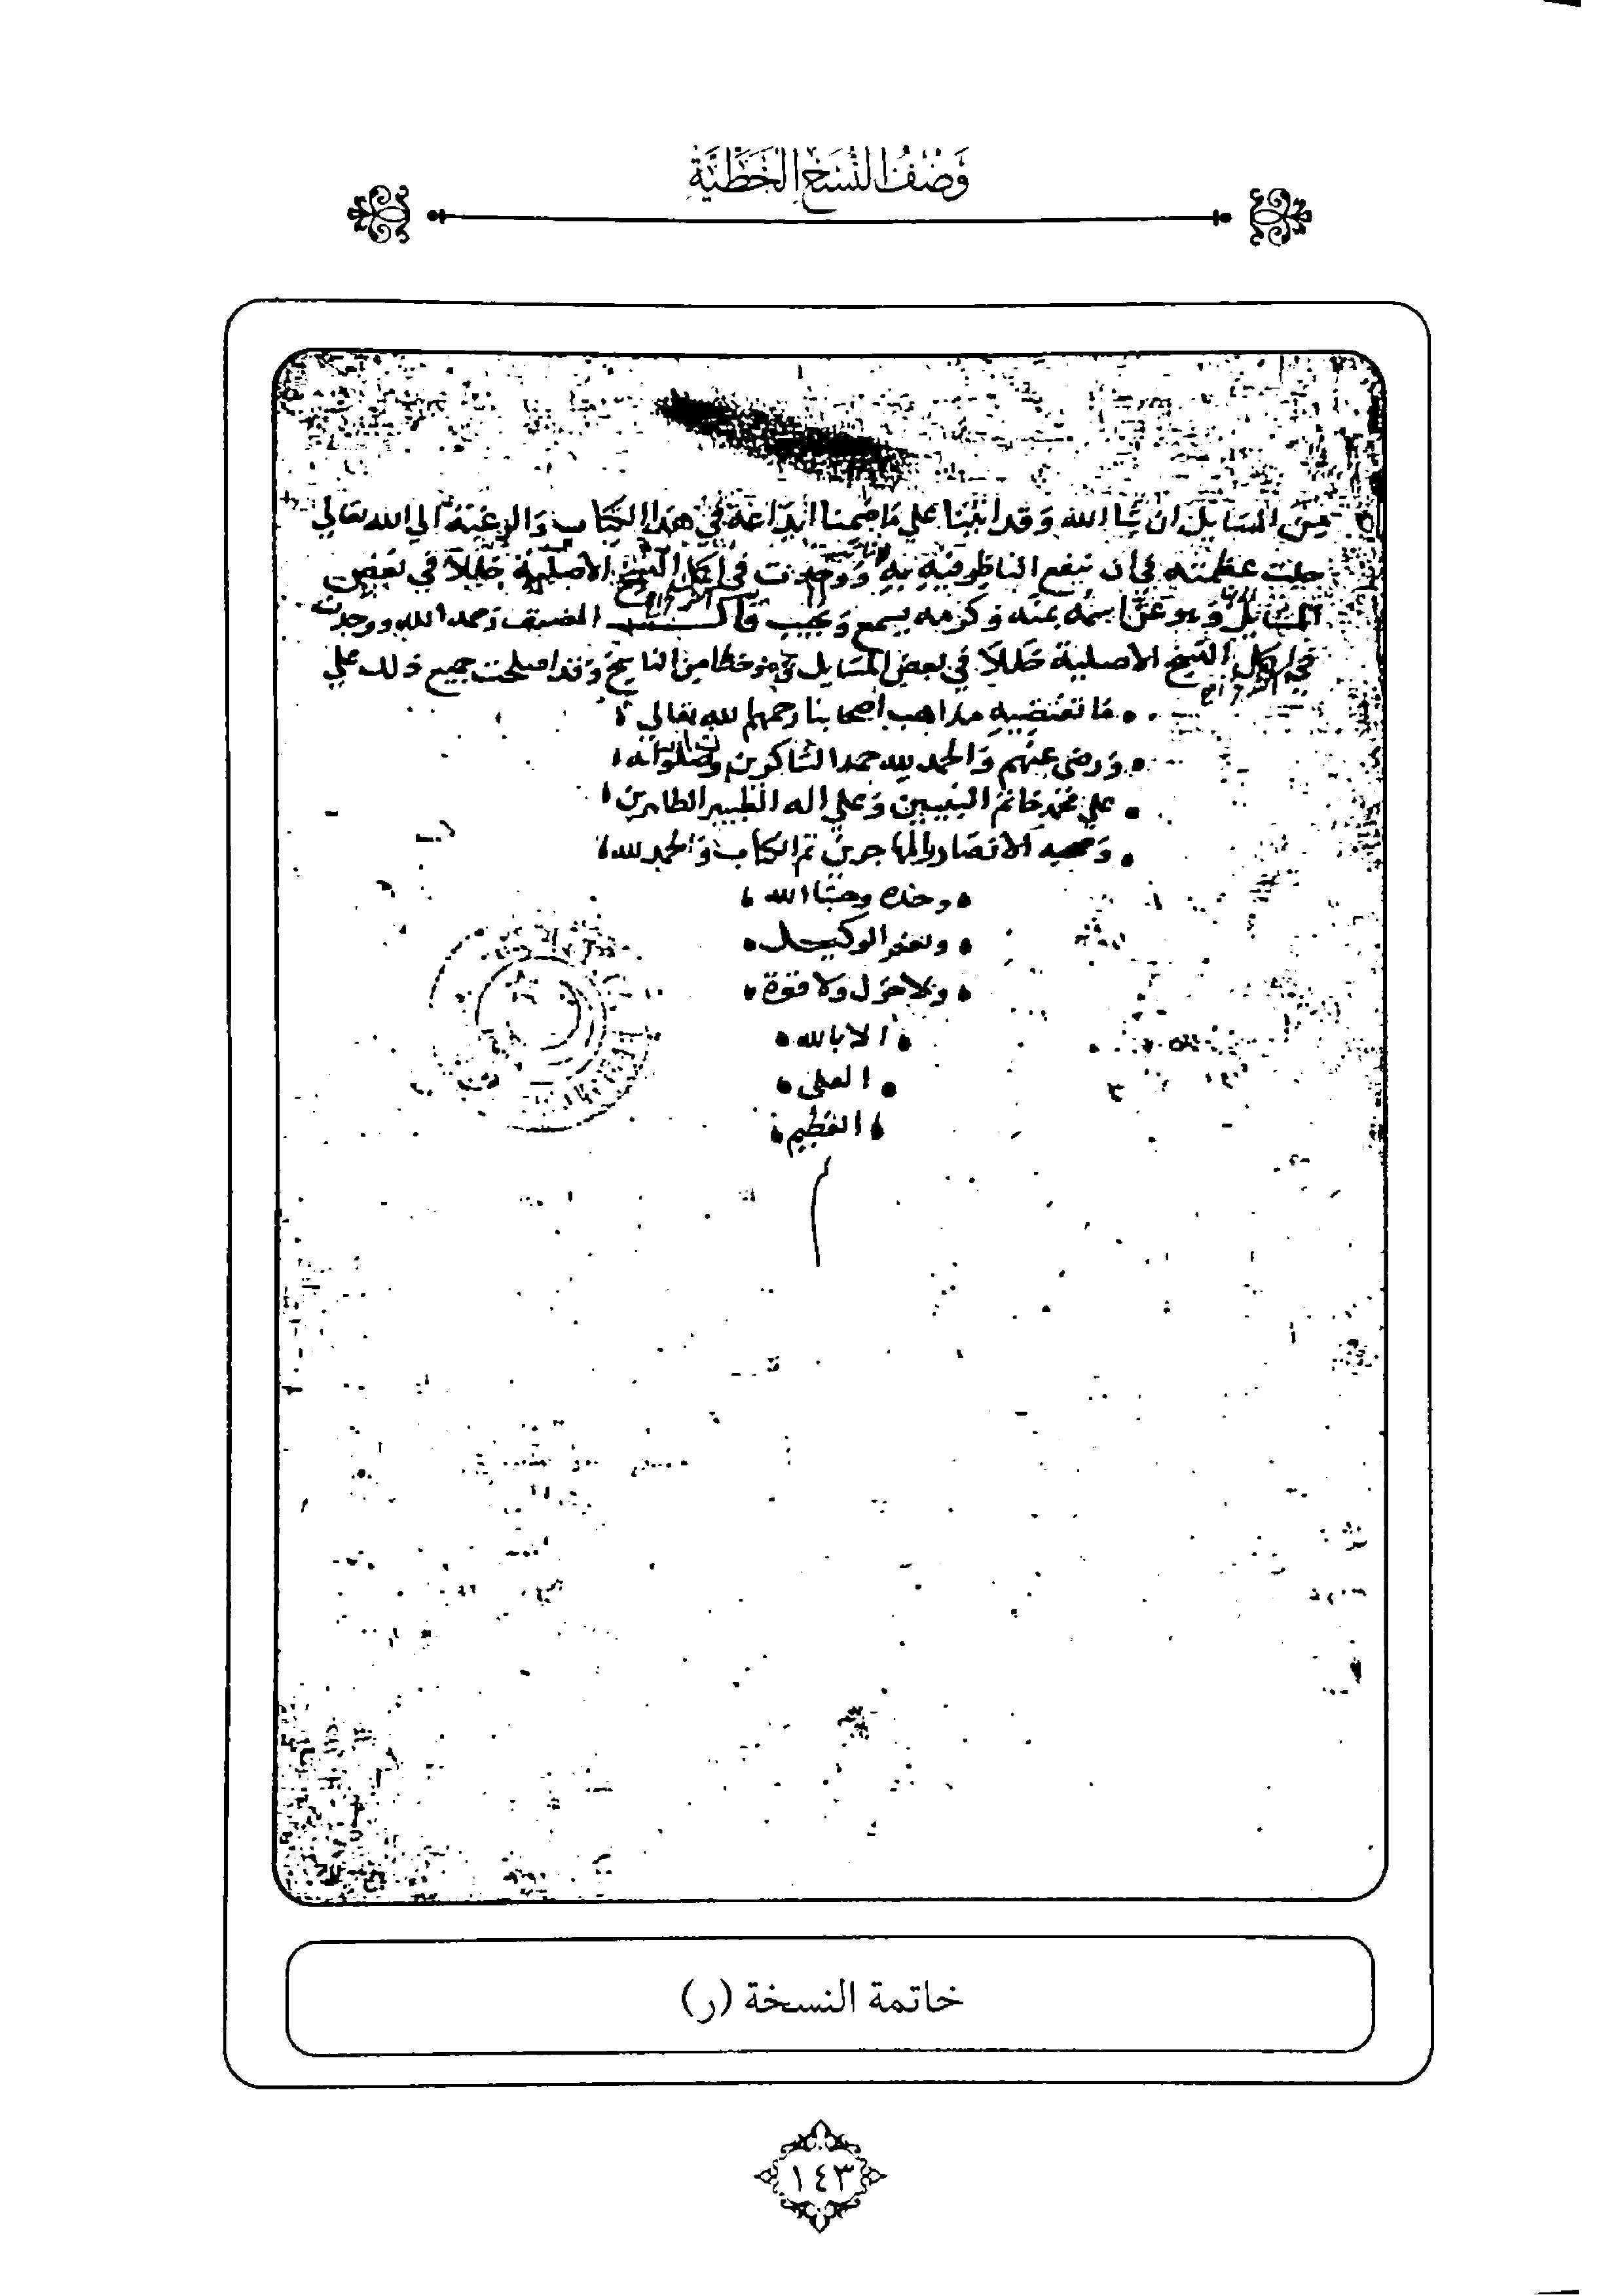 وَصْفُ النُّسَخِ الخَطِّيَّةِ
من المسايل ان شا الله وقد اتينا علي ما ضمنا ايداعه في هذا الكتاب والرغبة الي الله تعالي
جلت عظمته في أن ينفع الناظر فيه به ووجدت في اكل النسخ الأصلية خللاً في بعض
المسايل وهو عز اسمه بمنه وكرمه يسمع ويجيب قال المصنف رحمه الله ووجدت
في اكل النسخ الاصلية خللاً في بعض المسايل وهو خطا من الناسخ وقد اصلحت جميع ذلك علي
ما تقتضيه مذاهب اصحابنا رحمهم الله تعالي
ورضي عنهم والحمد لله حمد الشاكرين وصلواته
علي محمد خاتم النبيين وعلي اله الطيبين الطاهرين
وصحبه الانصار والمهاجرين تم الكتاب والحمد لله
وحده وحسبنا الله
ونعم الوكيل
ولا حول ولا قوة
الا بالله
العلي
العظيم
خاتمة النسخة (ر)
١٤٣